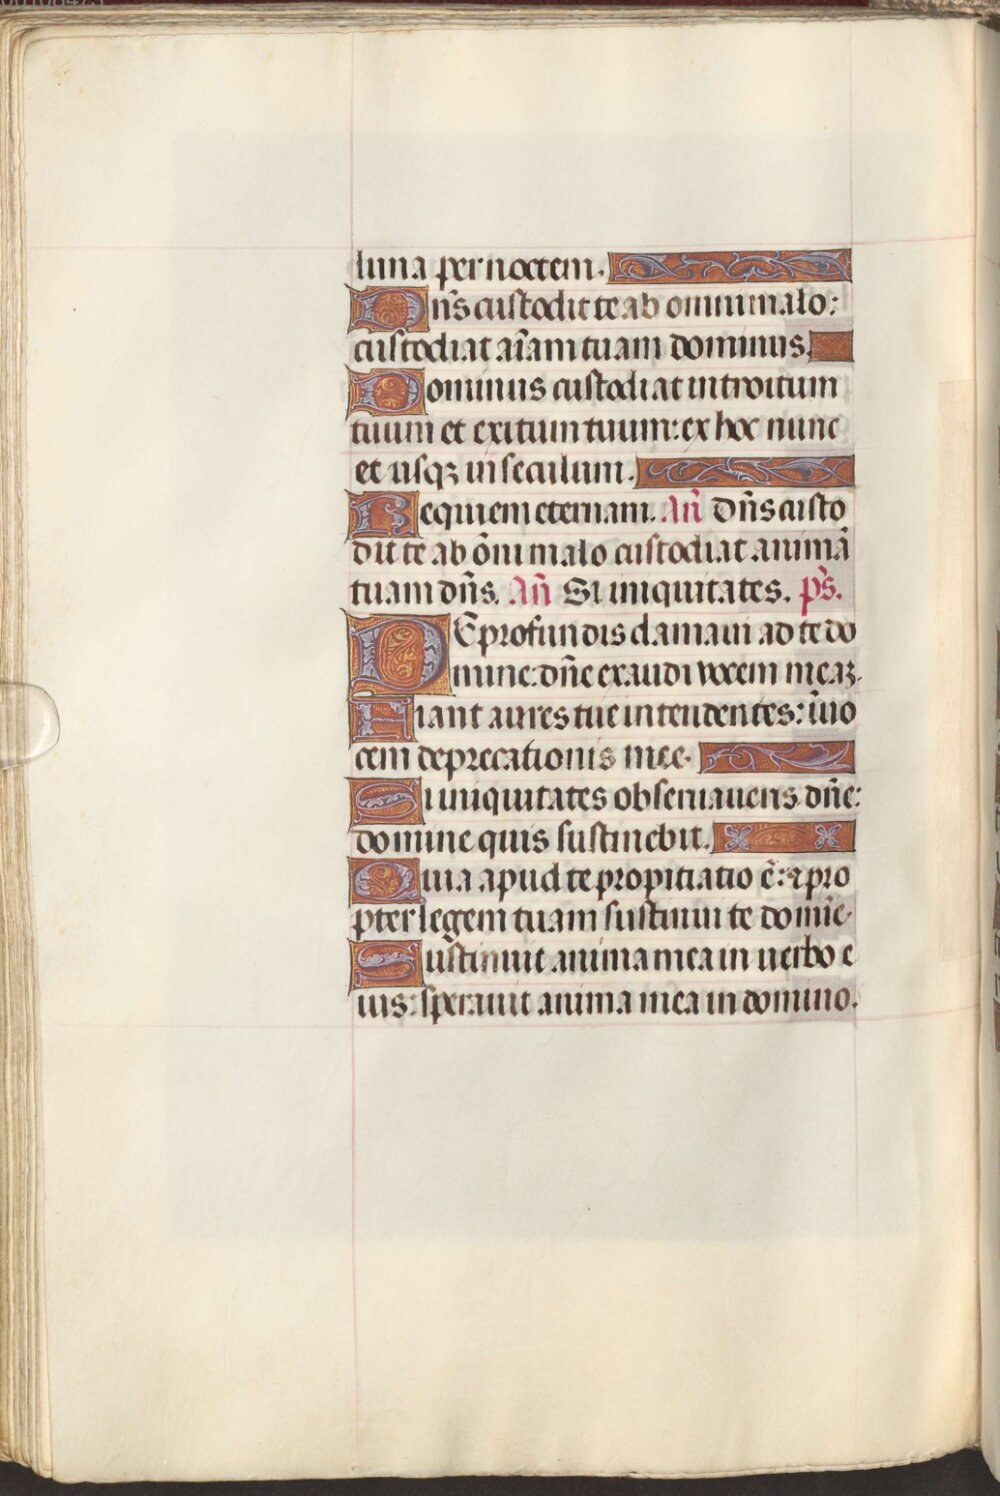 luna per noctem.
Dñs custodit te ab omni malo:
custodiat aĩam tuam dominus.
Dominus custodiat introitum
tuum et exitum tuum: ex hoc nunc
et usqꝫ in seculum.
Requiem eternam. Añ Dñs custo
dit te ab õni malo custodiat animã
tuam dñs. Añ Si iniquitates. ps̃.
DE profundis clamavi ad te do
mine: dñe exaudi vocem meaꝫ.
Fiant aures tue intendentes: ĩ vo
cem deprecationis mee.
Si iniquitates observaveris dñe:
domine quis sustinebit.
Quia apud te propitiatio ẽ: ⁊ pro
pter legem tuam sustinui te domĩe.
Sustinuit anima mea in verbo e
ius: speravit anima mea in domino.